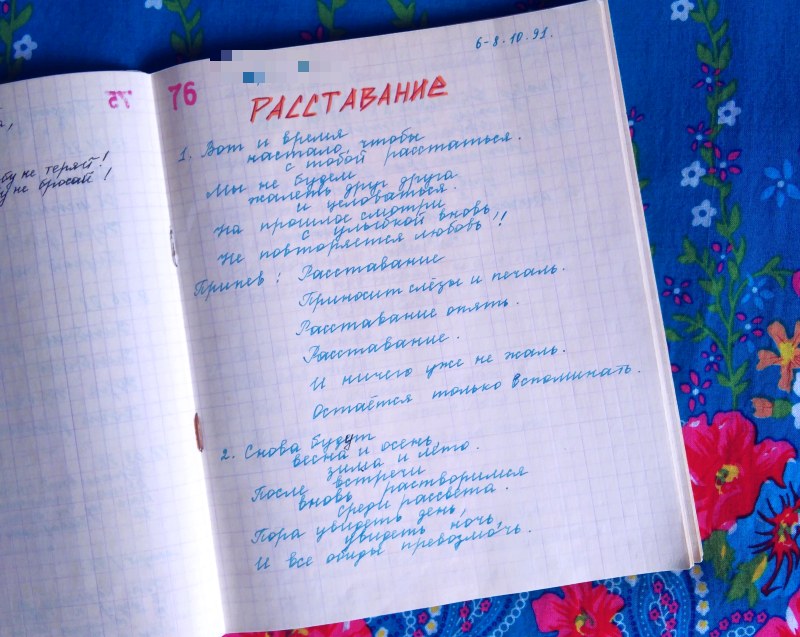 а,
бу не теряй!
у не бросай!
75
76
6-8.10.91.
РАССТАВАНИЕ
1. Вот и время
настало, чтобы
с тобой расстаться.
Мы не будем
жалеть друг друга
и целоваться.
На прошлое смотри
с улыбкой вновь,
Не повторяется любовь!!
Припев: Расставание
Приносит слёзы и печаль.
Расставание опять.
Расставание.
И ничего уже не жаль.
Остаётся только вспоминать.
2. Снова будут
весна и осень,
зима и лето.
После встречи
вновь растворимся
среди рассвета.
Пора увидеть день,
увидеть ночь,
И все обиды превозмочь.